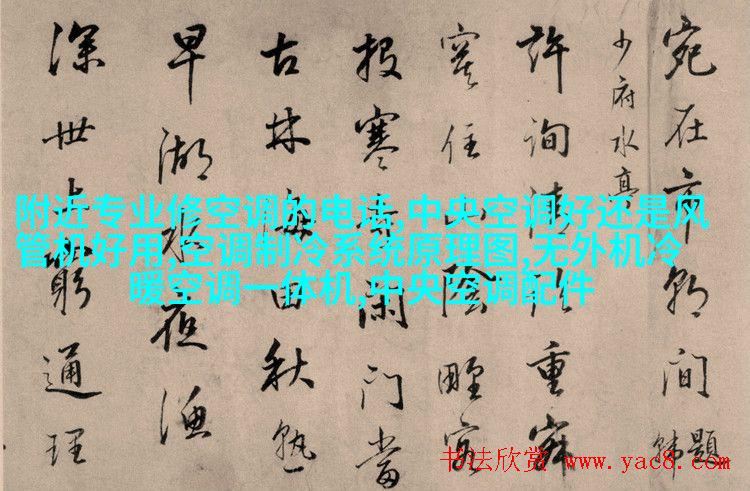 附近专业修空调的电话,中央空调好还是风
管机好用,空调制冷系统原理图,无外机冷
暖空调一体机,中央空调配件
題
少府水亭
宛在市間
許詢重
住山陰野
报寒閑門當
古林田秋熟
早湖水夜渔
深世上窮通理
书法欣赏 www.yac8.com